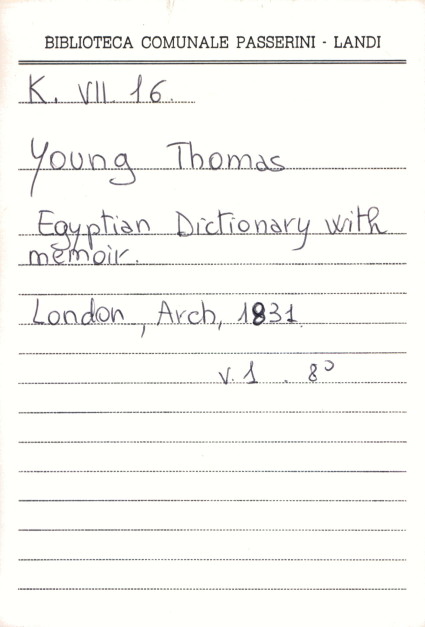 BIBLIOTECA COMUNALE PASSERINI - LANDI
K. VII. 16.
Young Thomas
Egyptian Dictionary with
memoir.
London, Arch, 1831
v. 1 . 8°